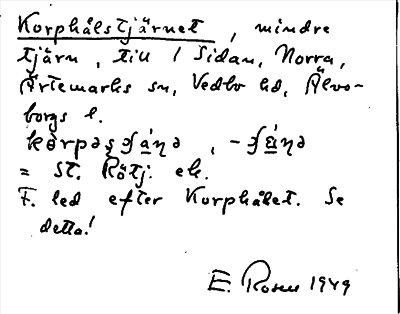 Korphålstjärnet, mindre
tjärn, till / Sidan, Norra,
Ärtemarks sn, Vedbo hd, Älvs-
borgs l.
= St. Rötj. ek.
F. led efter Korphålet. Se
detta!
E. Rosen 1949